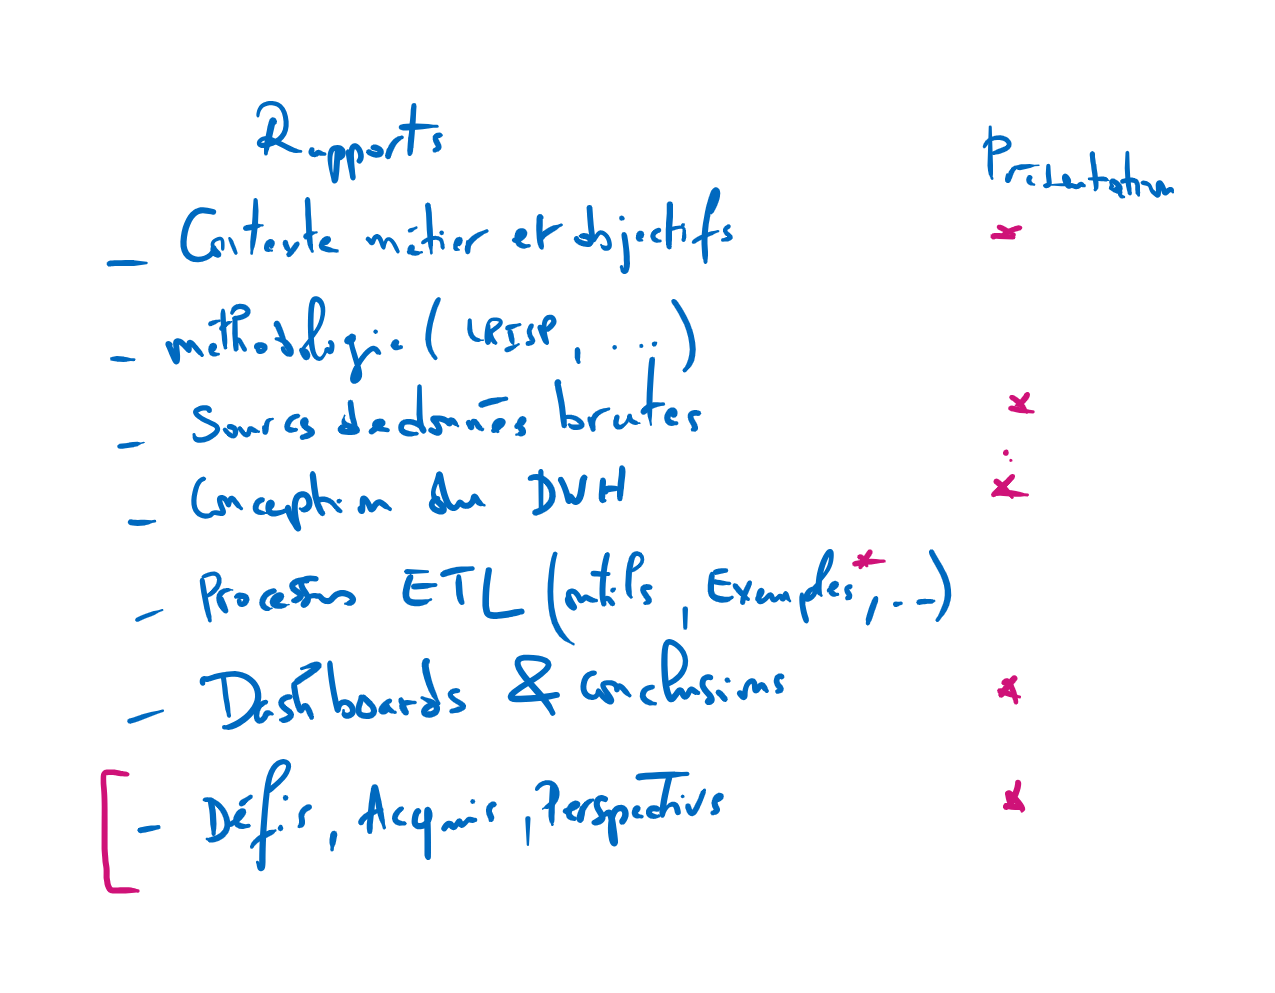 Rapports
Présentation
- Contexte métier et objectifs *
- méthodologie ( CRISP, ...)
- Sources de données brutes *
- Conception du DWH *
- Processus ETL (outils, Exemples*, ...)
- Dashboards & conclusions *
[ - Défis, Acquis, Perspectives *